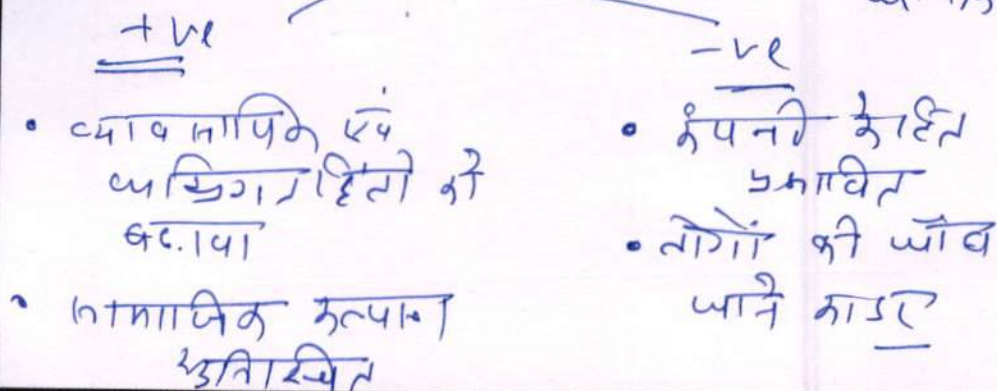 +ve
• व्यावसायिक एवं
व्यक्तिगत हितों को
बढ़ावा
• सामाजिक कल्याण
सुनिश्चित
-ve
• कंपनी के हित
प्रभावित
• लोगों की जॉब
जाने का डर